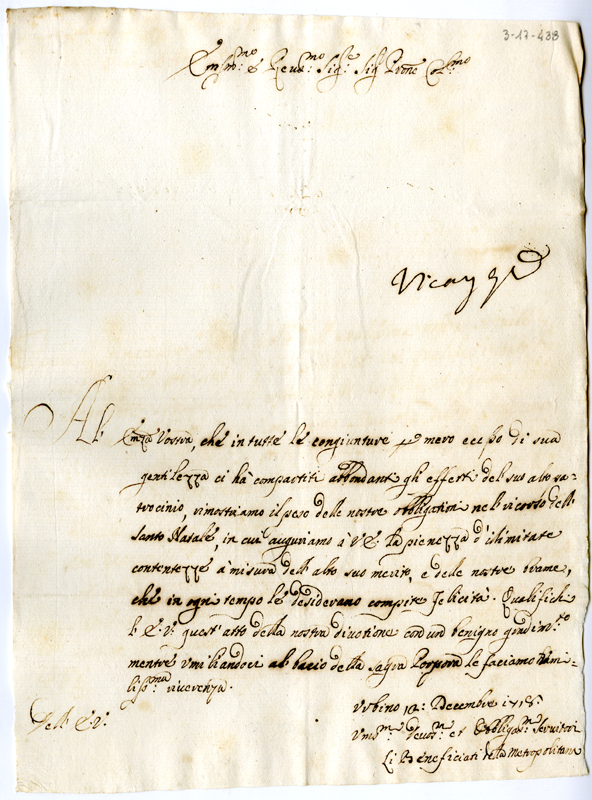 3-17-438
Em̃mo: e Reumo: Sigre: Sig Prone Colmo
All
Emza Vostra, che in tutte le congiunture per mero eccesso di sua
gentilezza ci hà compartiti abbondanti gli effetti del suo alto pa=
trocinio, rimostriamo il peso delle nostre obbligationi nel ricorso dell
Santo Natale, in cui auguriamo à V.E. la pienezza d'illimitate
contentezze à misura dell'alto suo merito, e delle nostre brame,
che in ogni tempo le desiderano compite felicità. Qualifichi
l'E.V. quest'atto della nostra divotione con un benigno gradimto
mentre umiliandoci al bacio della sagra Porpora le facciamo umi=
lissma riverenza.
Urbino Decembre
Dell'E.V.
Vmi: deuoti: et Obbligati: Seruitori
Li Beneficiati della Metropolitana